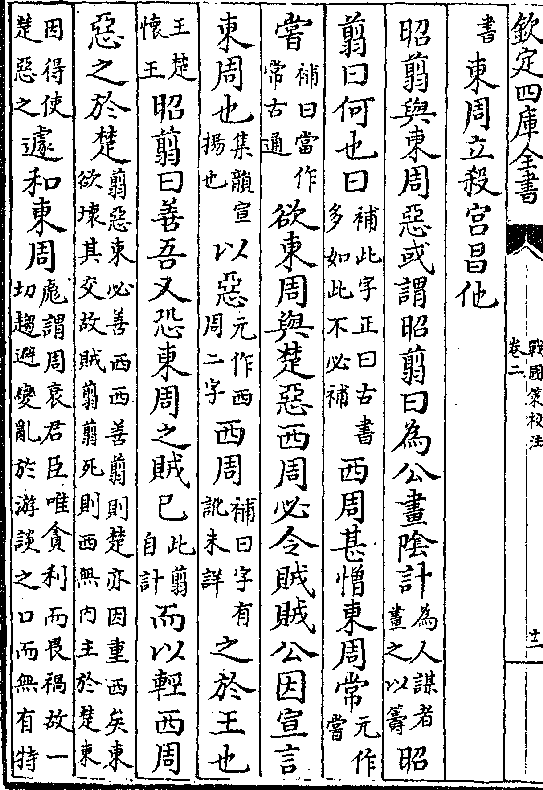 欽定四庫全書
戰國策校注
卷二
書 東周立殺宫昌他
昭翦與東周惡或謂昭翦曰為公畫陰計為人謀者畫之以籌昭
翦曰何也曰補此字正曰古書多如此不必補西周甚憎東周常元作嘗
嘗補曰當作常古通欲東周與楚惡西周必令賊賊公因宣言
東周也集韻宣揚也以惡元作西周二字西周補曰字有訛未詳之於王也
王楚懷王昭翦曰善吾又恐東周之賊已此翦自計而以輕西周
惡之於楚翦惡東必善西西善翦則楚亦因重西矣東欲壞其交故賊翦翦死則西無内主於楚東
因得使楚惡之遽和東周彪謂周衰君臣唯貪利而畏禍故一切趨避變亂於游談之口而無有特